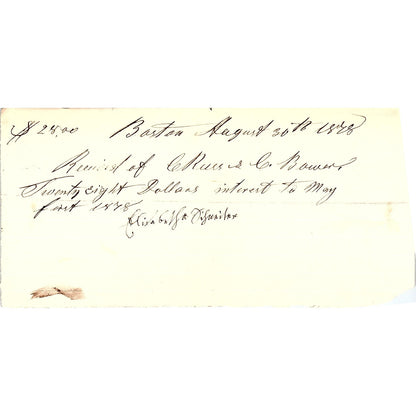 $28.00 Boston August 30th 1878
Received of C & C Bowers
Twenty eight Dollars interest to May
first 1878
Elizabeth Schneiler